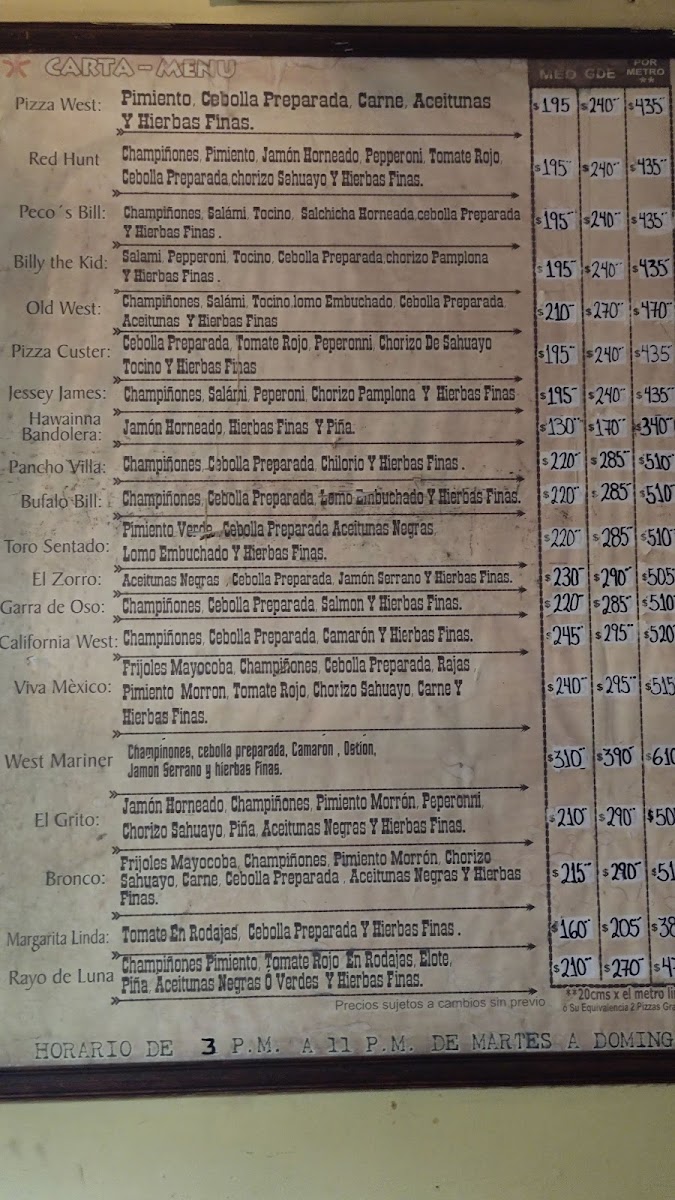 CARTA-MENU MED GDE POR METRO **
Pizza West: Pimiento, Cebolla Preparada, Carne, Aceitunas $195 $240 $435
Y Hierbas Finas.
Red Hunt Champiñones, Pimiento, Jamón Horneado, Pepperoni, Tomate Rojo, $195 $240 $435
Cebolla Preparada,chorizo Sahuayo Y Hierbas Finas.
Peco´s Bill: Champiñones, Salámi, Tocino, Salchicha Horneada,cebolla Preparada $195 $240 $435
Y Hierbas Finas .
Billy the Kid: Salami, Pepperoni, Tocino, Cebolla Preparada,chorizo Pamplona $195 $240 $435
Y Hierbas Finas .
Old West: Champiñones, Salámi, Tocino,lomo Embuchado, Cebolla Preparada, $210 $270 $470
Aceitunas Y Hierbas Finas
Pizza Custer: Cebolla Preparada, Tomate Rojo, Peperonni, Chorizo De Sahuayo $195 $240 $435
Tocino Y Hierbas Finas
Jessey James: Champiñones, Salámi, Peperoni, Chorizo Pamplona Y Hierbas Finas $195 $240 $435
Hawainna
Bandolera: Jamón Horneado, Hierbas Finas Y Piña. $130 $170 $340
Pancho Villa: Champiñones, Cebolla Preparada, Chilorio Y Hierbas Finas . $220 $285 $510
Bufalo Bill: Champiñones, Cebolla Preparada, Lomo Embuchado Y Hierbas Finas. $220 $285 $510
Toro Sentado: Pimiento Verde, Cebolla Preparada Aceitunas Negras, $220 $285 $510
Lomo Embuchado Y Hierbas Finas.
El Zorro: Aceitunas Negras , Cebolla Preparada, Jamón Serrano Y Hierbas Finas. $230 $290 $505
Garra de Oso: Champiñones, Cebolla Preparada, Salmon Y Hierbas Finas. $220 $285 $510
California West: Champiñones, Cebolla Preparada, Camarón Y Hierbas Finas. $245 $295 $520
Viva Mèxico: Frijoles Mayocoba, Champiñones, Cebolla Preparada, Rajas $240 $295 $515
Pimiento Morron, Tomate Rojo, Chorizo Sahuayo, Carne Y
Hierbas Finas.
West Mariner Champinones, cebolla preparada, Camaron , Ostion, $310 $390 $610
Jamon Serrano y hierbas Finas.
El Grito: Jamón Horneado, Champiñones, Pimiento Morrón, Peperonni, $210 $290 $50
Chorizo Sahuayo, Piña, Aceitunas Negras Y Hierbas Finas.
Bronco: Frijoles Mayocoba, Champiñones, Pimiento Morrón, Chorizo $215 $290 $51
Sahuayo, Carne, Cebolla Preparada , Aceitunas Negras Y Hierbas
Finas.
Margarita Linda: Tomate En Rodajas, Cebolla Preparada Y Hierbas Finas . $160 $205 $38
Rayo de Luna Champiñones Pimiento, Tomate Rojo En Rodajas, Elote, $210 $270 $47
Piña, Aceitunas Negras O Verdes Y Hierbas Finas.
Precios sujetos a cambios sin previo
**20cms x el metro li
ó Su Equivalencia 2 Pizzas Gra
HORARIO DE 3 P.M. A 11 P.M. DE MARTES A DOMING